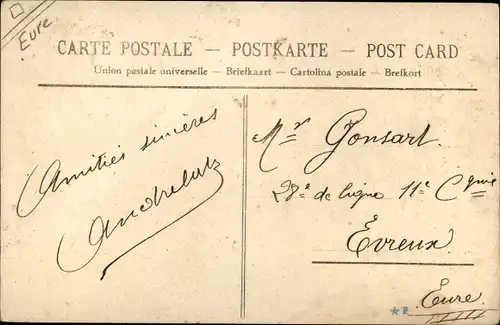 Eure
CARTE POSTALE — POSTKARTE — POST CARD
Union postale universelle — Briefkaart — Cartolina postale — Brefkort
Amitiés sincères
Mr Gonsart.
28e de ligne 11e Cgnie
Evreux
Eure.